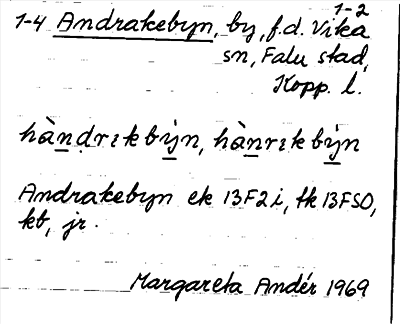 1-2
1-4 Andrakebyn, by, f.d. Vika
sn, Falu stad,
Kopp. l.
hàndrıkbýn, hànrıkbýn
Andrakebyn ek 13F2i, tk 13FSO,
kb, jr.
Margareta Andér 1969